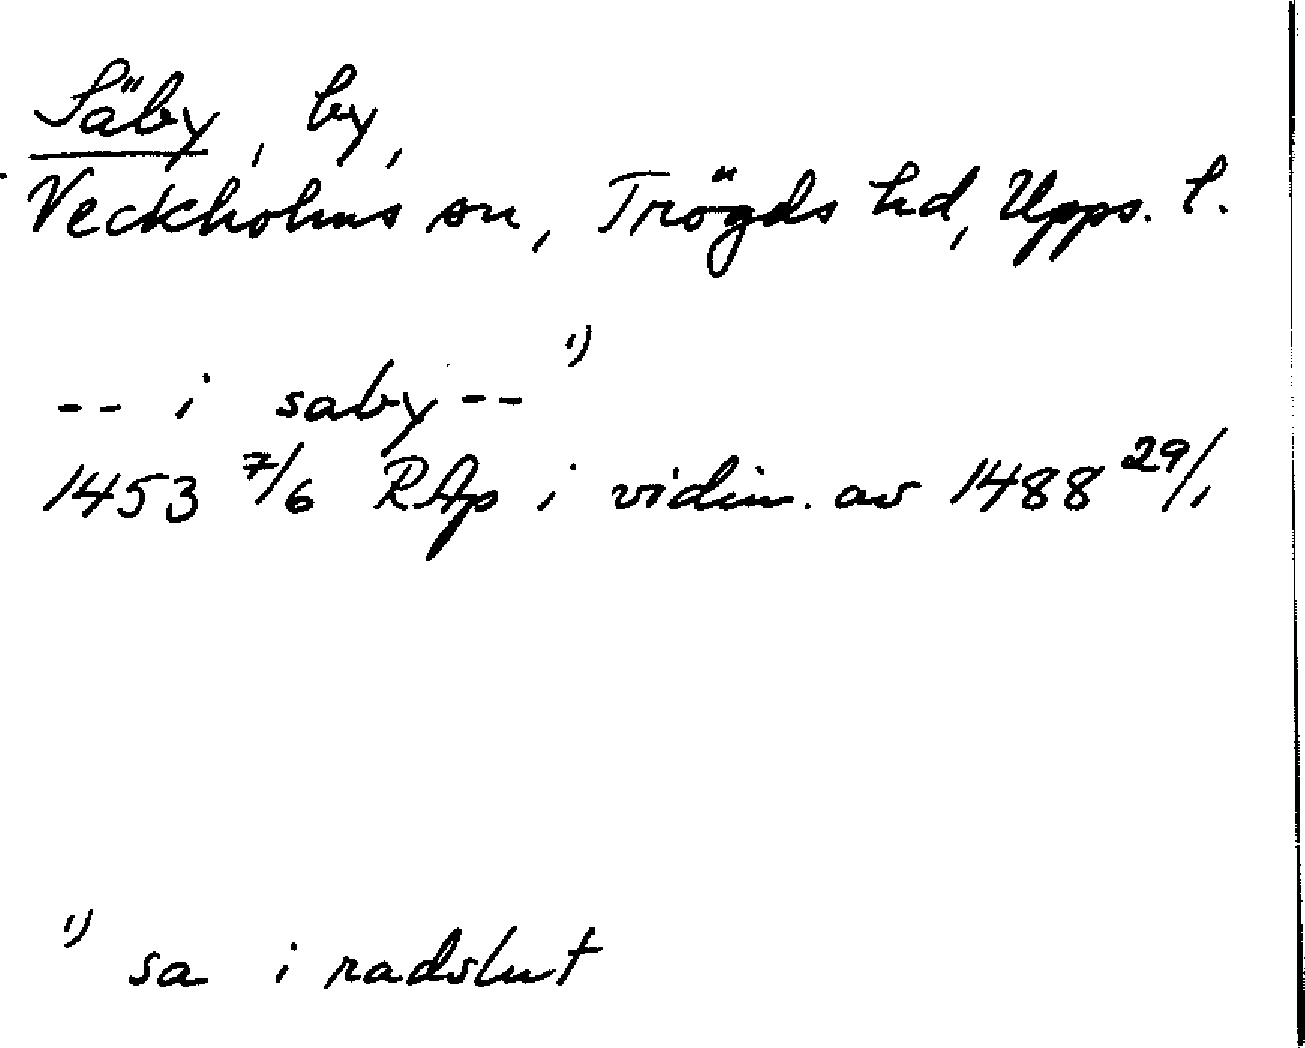 Säby, by,
Veckholms sn, Trögds hd, Upps. l.
-- i saby -- 1)
1453 7/6 RAp i vidim. av 1488 29/1
1) sa i radslut